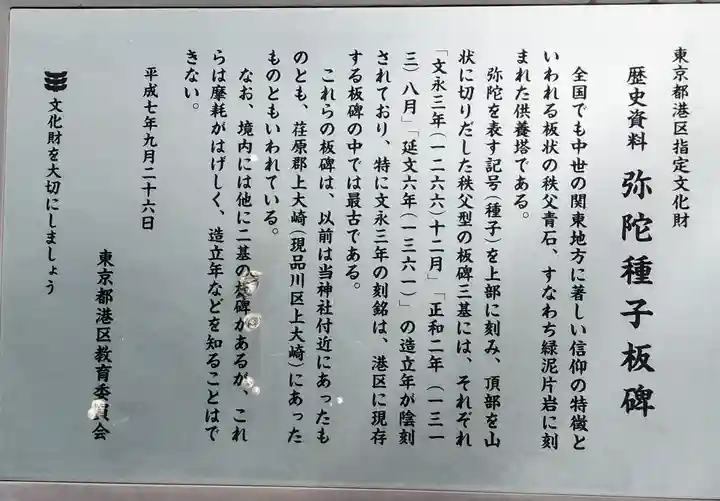 東京都港区指定文化財
歴史資料 弥陀種子板碑
全国でも中世の関東地方に著しい信仰の特徴と
いわれる板状の秩父青石、すなわち緑泥片岩に刻
まれた供養塔である。
弥陀を表す記号(種子)を上部に刻み、頂部を山
状に切りだした秩父型の板碑三基には、それぞれ
「文永三年(一二六六)十二月」「正和二年(一三一
三)八月」「延文六年(一三六一)」の造立年が陰刻
されており、特に文永三年の刻銘は、港区に現存
する板碑の中では最古である。
これらの板碑は、以前は当神社付近にあったも
のとも、荏原郡上大崎(現品川区上大崎)にあった
ものともいわれている。
なお、境内には他に二基の板碑があるが、これ
らは摩耗がはげしく、造立年などを知ることはで
きない。
平成七年九月二十六日
東京都港区教育委員会
文化財を大切にしましょう